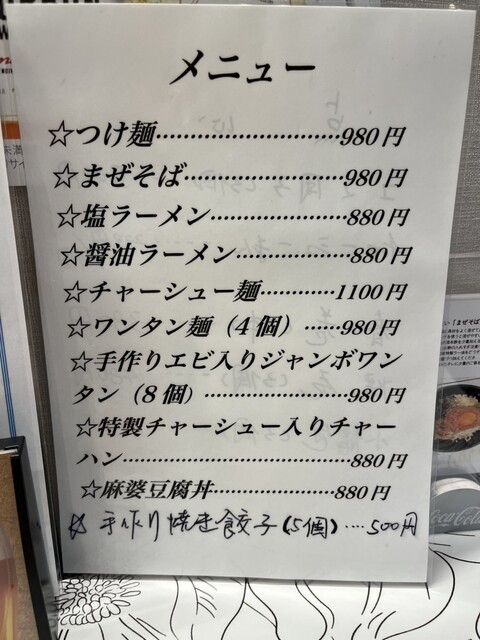 メニュー
☆つけ麺……………………980円
☆まぜそば…………………980円
☆塩ラーメン………………880円
☆醤油ラーメン……………880円
☆チャーシュー麺…………1100円
☆ワンタン麺（4個）……980円
☆手作りエビ入りジャンボワン
タン（8個）………………980円
☆特製チャーシュー入りチャー
ハン…………………………880円
☆麻婆豆腐丼………………880円
☆手作り焼き餃子（5個）….500円
「まぜそば
Coca-Cola